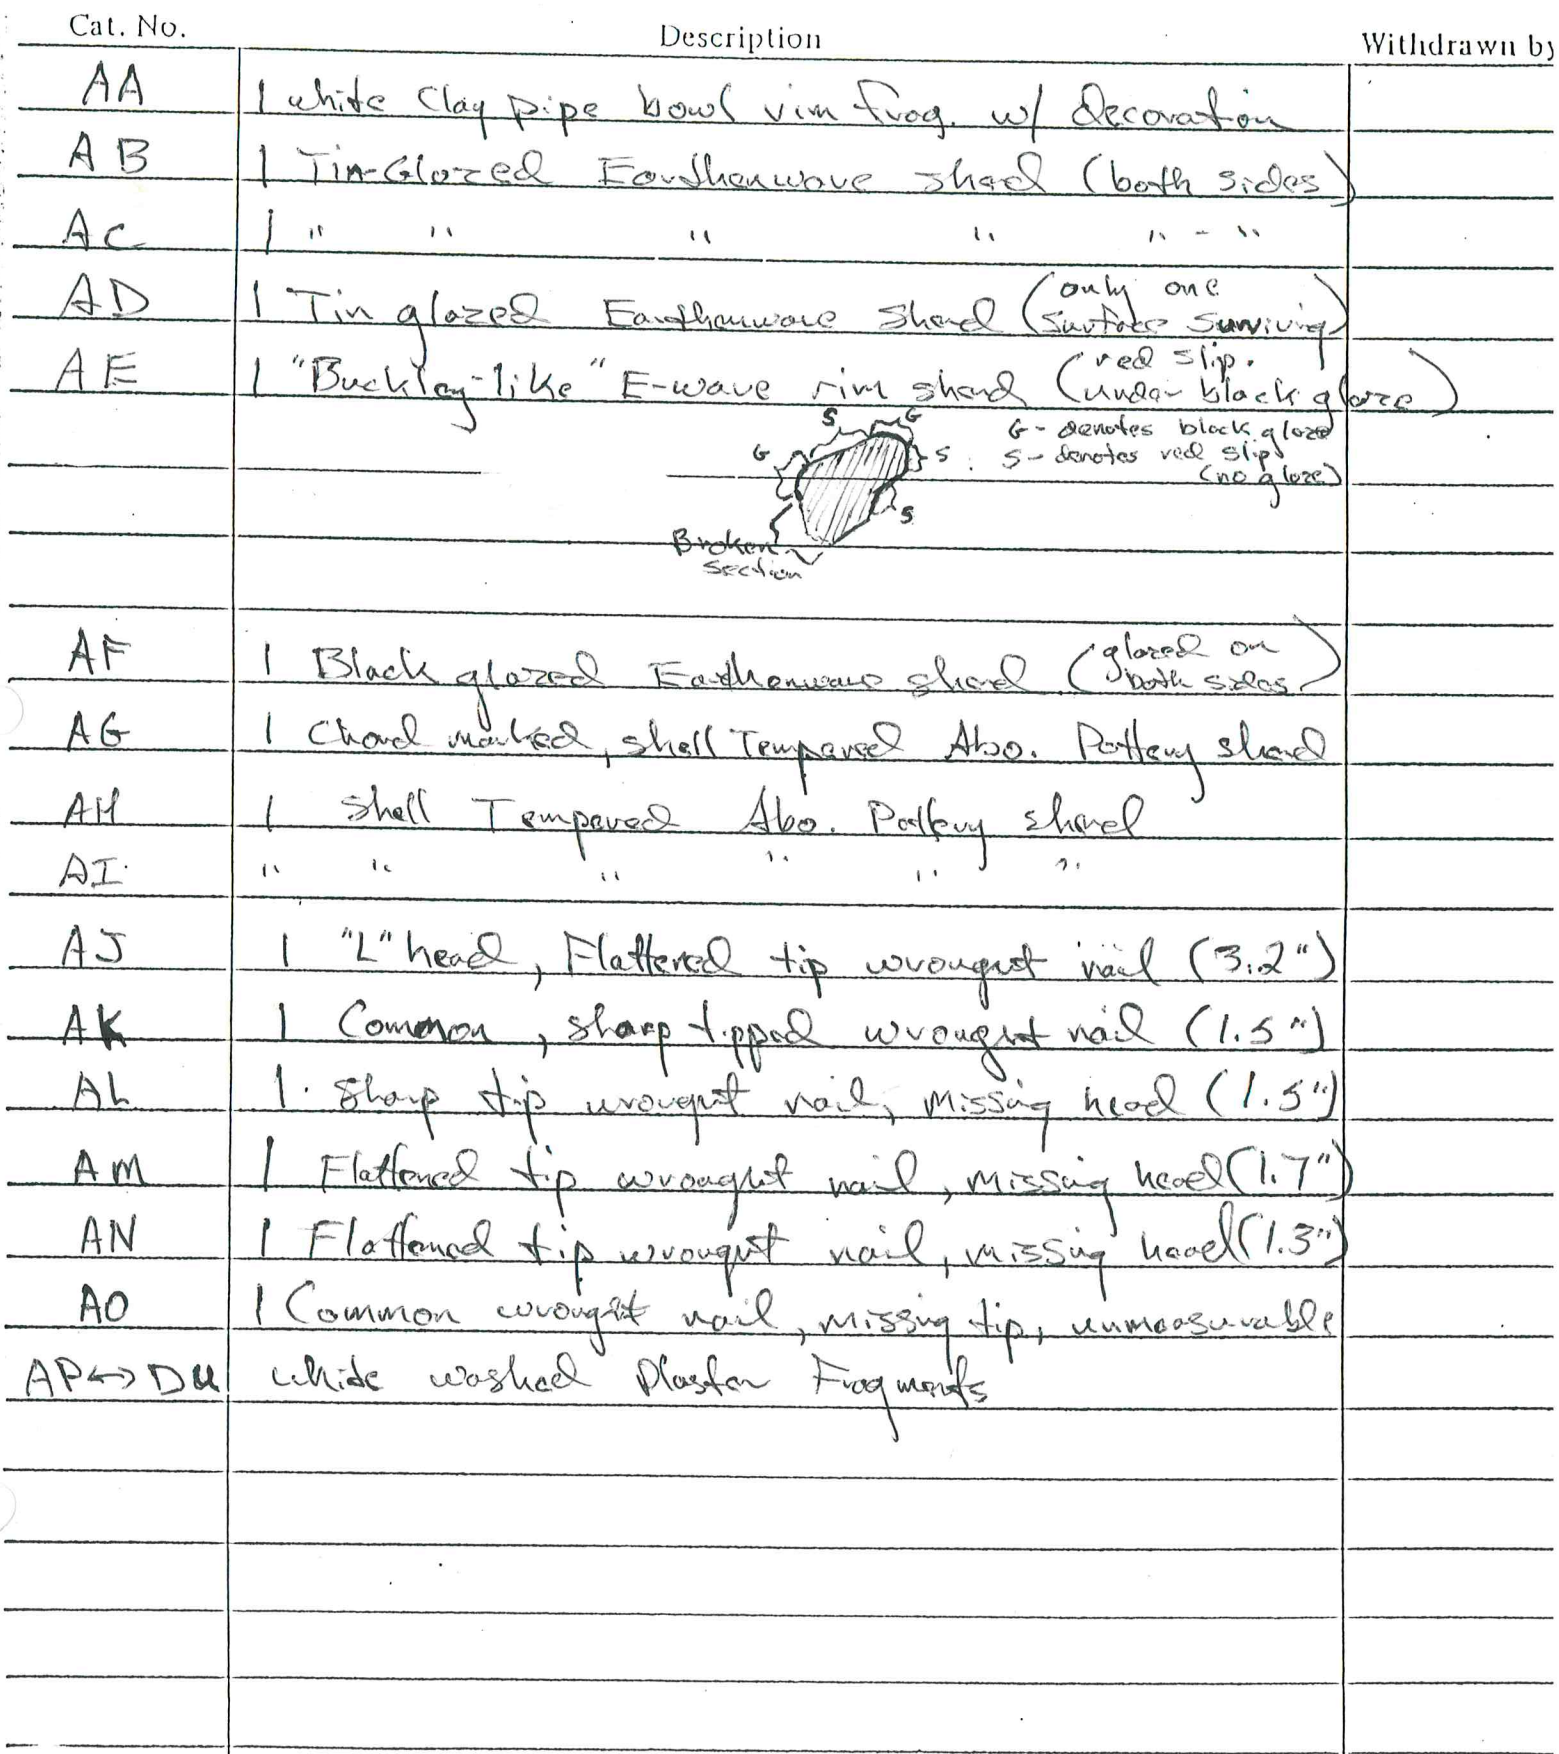 Cat. No. Description Withdrawn by
AA 1 white Clay pipe bowl rim frag. w/ decoration
AB 1 Tin-Glazed Earthenware shed (both sides)
AC 1 " " " " " - "
AD 1 Tin glazed Earthenware Sherd (only one surface surviving)
AE 1 "Buckley-like" E-ware rim sherd (red slip. under black glaze)
S G G- denotes black glaze
G S S- denotes red slip
(no glaze)
S
Broken
Section
AF 1 Black glazed Earthenware sherd (glazed on both sides)
AG 1 Chord marked, shell Tempered Abo. Pottery sherd
AH 1 Shell Tempered Abo. Pottery sherd
AI " " " " " "
AJ 1 "L" head, Flattered tip wrought nail (3.2")
AK 1 Common, sharp tipped wrought nail (1.5")
AL 1 Sharp tip wrought nail, missing head (1.5")
AM 1 Flattened tip wrought nail, missing head (1.7")
AN 1 Flattened tip wrought nail, missing head (1.3")
AO 1 Common wrought nail, missing tip, unmeasurable
AP↔DU white washed Plaster Fragments